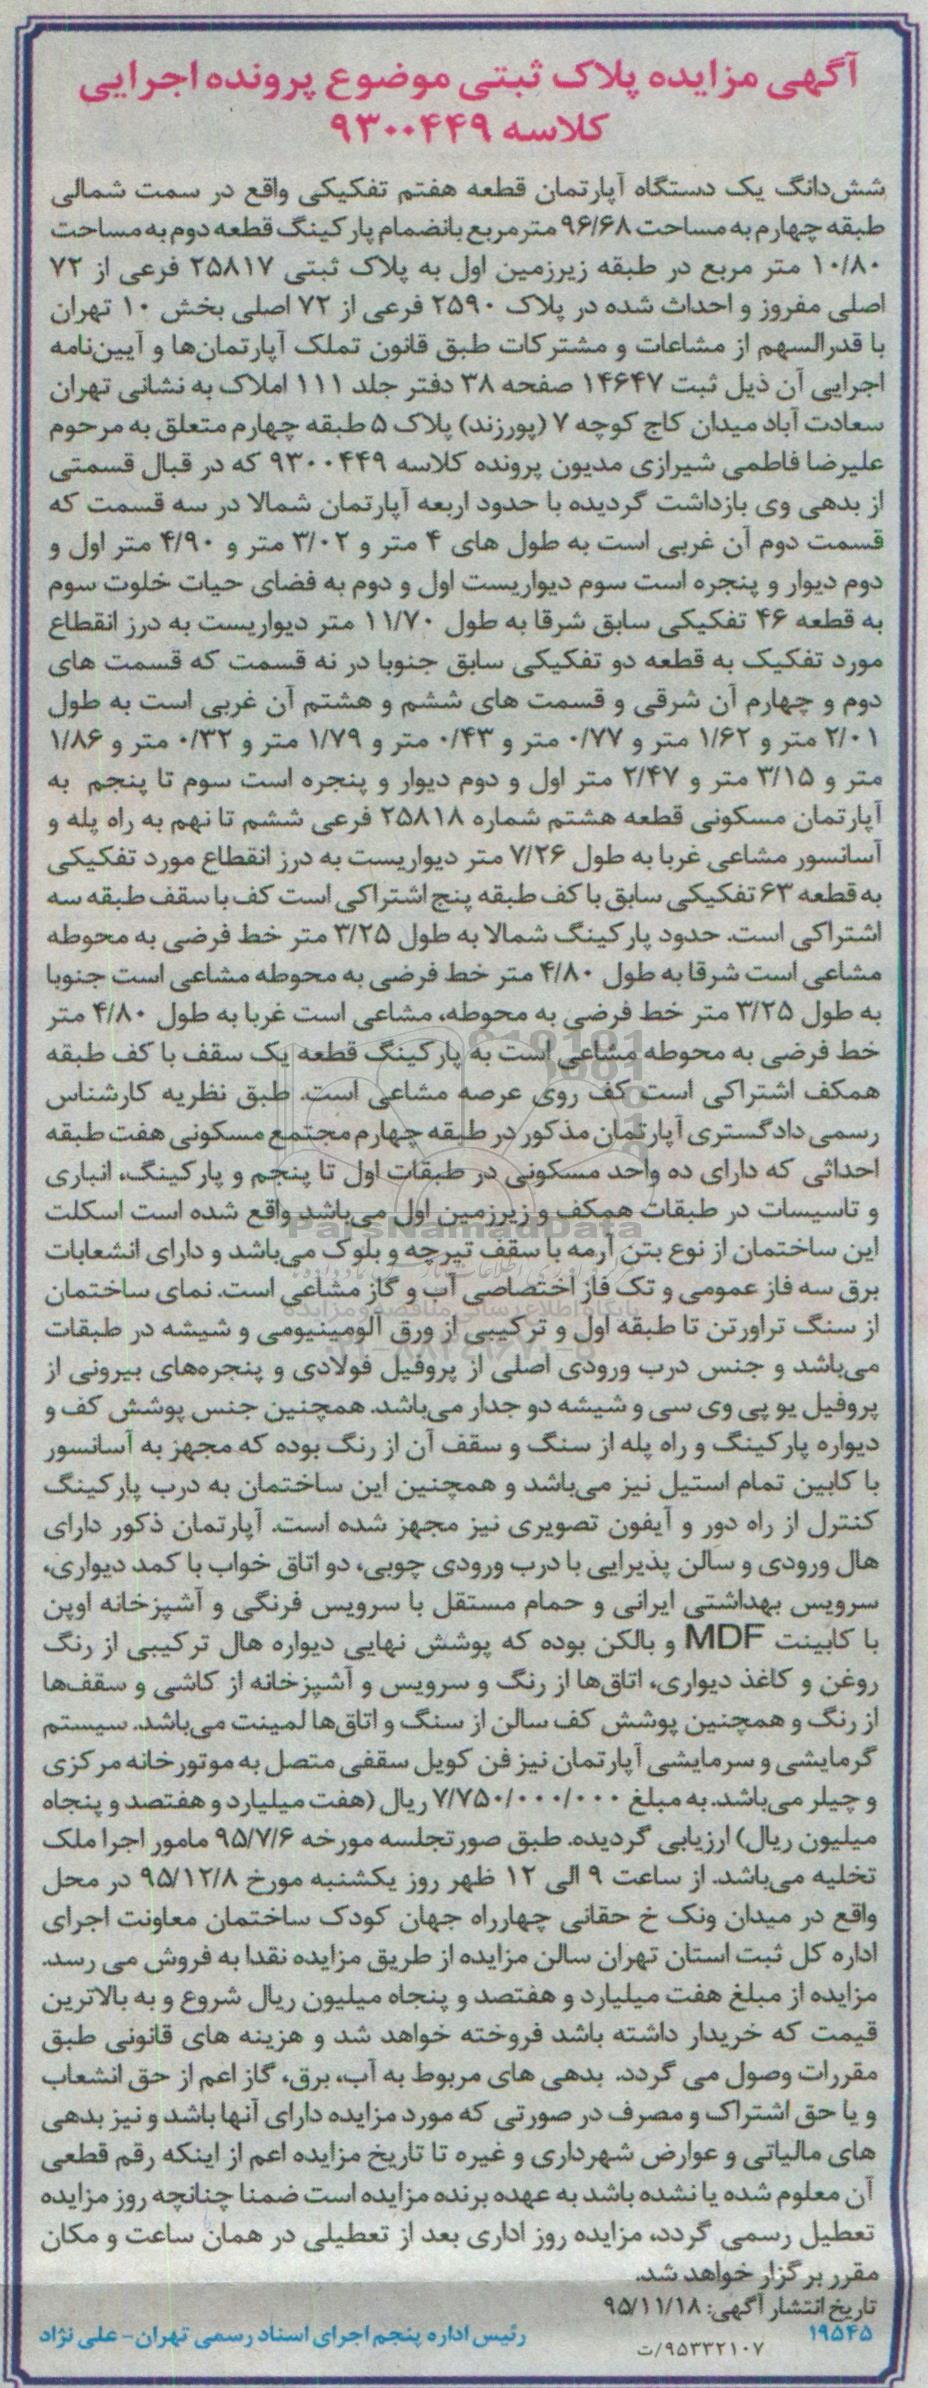 آگهی مزایده پلاک ثبتی موضوع پرونده اجرایی
کلاسه ۹۳۰۰۴۴۹
شش‌دانگ یک دستگاه آپارتمان قطعه هفتم تفکیکی واقع در سمت شمالی
طبقه چهارم به مساحت ۹۶/۶۸ مترمربع بانضمام پارکینگ قطعه دوم به مساحت
۱۰/۸۰ متر مربع در طبقه زیرزمین اول به پلاک ثبتی ۲۵۸۱۷ فرعی از ۷۲
اصلی مفروز و احداث شده در پلاک ۲۵۹۰ فرعی از ۷۲ اصلی بخش ۱۰ تهران
با قدرالسهم از مشاعات و مشترکات طبق قانون تملک آپارتمان‌ها و آیین‌نامه
اجرایی آن ذیل ثبت ۱۴۶۴۷ صفحه ۳۸ دفتر جلد ۱۱۱ املاک به نشانی تهران
سعادت آباد میدان کاج کوچه ۷ (پورزند) پلاک ۵ طبقه چهارم متعلق به مرحوم
علیرضا فاطمی شیرازی مدیون پرونده کلاسه ۹۳۰۰۴۴۹ که در قبال قسمتی
از بدهی وی بازداشت گردیده با حدود اربعه آپارتمان شمالا در سه قسمت که
قسمت دوم آن غربی است به طول های ۴ متر و ۳/۰۲ متر و ۴/۹۰ متر اول و
دوم دیوار و پنجره است سوم دیواریست اول و دوم به فضای حیات خلوت سوم
به قطعه ۴۶ تفکیکی سابق شرقا به طول ۱۱/۷۰ متر دیواریست به درز انقطاع
مورد تفکیک به قطعه دو تفکیکی سابق جنوبا در نه قسمت که قسمت های
دوم و چهارم آن شرقی و قسمت های ششم و هشتم آن غربی است به طول
۲/۰۱ متر و ۱/۶۲ متر و ۰/۷۷ متر و ۰/۴۳ متر و ۱/۷۹ متر و ۰/۳۲ متر و ۱/۸۶
متر و ۳/۱۵ متر و ۲/۴۷ متر اول و دوم دیوار و پنجره است سوم تا پنجم به
آپارتمان مسکونی قطعه هشتم شماره ۲۵۸۱۸ فرعی ششم تا نهم به راه پله و
آسانسور مشاعی غربا به طول ۷/۲۶ متر دیواریست به درز انقطاع مورد تفکیکی
به قطعه ۶۳ تفکیکی سابق با کف طبقه پنج اشتراکی است کف با سقف طبقه سه
اشتراکی است. حدود پارکینگ شمالا به طول ۳/۲۵ متر خط فرضی به محوطه
مشاعی است شرقا به طول ۴/۸۰ متر خط فرضی به محوطه مشاعی است جنوبا
به طول ۳/۲۵ متر خط فرضی به محوطه، مشاعی است غربا به طول ۴/۸۰ متر
خط فرضی به محوطه مشاعی است به پارکینگ قطعه یک سقف با کف طبقه
همکف اشتراکی است کف روی عرصه مشاعی است. طبق نظریه کارشناس
رسمی دادگستری آپارتمان مذکور در طبقه چهارم مجتمع مسکونی هفت طبقه
احداثی که دارای ده واحد مسکونی در طبقات اول تا پنجم و پارکینگ، انباری
و تاسیسات در طبقات همکف و زیرزمین اول می‌باشد واقع شده است اسکلت
ParsNamadData
این ساختمان از نوع بتن آرمه با سقف تیرچه و بلوک می‌باشد و دارای انشعابات
برق سه فاز عمومی و تک فاز اختصاصی آب و گاز مشاعی است. نمای ساختمان
پایگاه اطلاع رسانی مناقصه و مزایده
از سنگ تراورتن تا طبقه اول و ترکیبی از ورق آلومینیومی و شیشه در طبقات
می‌باشد و جنس درب ورودی اصلی از پروفیل فولادی و پنجره‌های بیرونی از
پروفیل یو پی وی سی و شیشه دو جدار می‌باشد. همچنین جنس پوشش کف و
دیواره پارکینگ و راه پله از سنگ و سقف آن از رنگ بوده که مجهز به آسانسور
با کابین تمام استیل نیز می‌باشد و همچنین این ساختمان به درب پارکینگ
کنترل از راه دور و آیفون تصویری نیز مجهز شده است. آپارتمان ذکور دارای
هال ورودی و سالن پذیرایی با درب ورودی چوبی، دو اتاق خواب با کمد دیواری،
سرویس بهداشتی ایرانی و حمام مستقل با سرویس فرنگی و آشپزخانه اوپن
با کابینت MDF و بالکن بوده که پوشش نهایی دیواره هال ترکیبی از رنگ
روغن و کاغذ دیواری، اتاق‌ها از رنگ و سرویس و آشپزخانه از کاشی و سقف‌ها
از رنگ و همچنین پوشش کف سالن از سنگ و اتاق‌ها لمینت می‌باشد. سیستم
گرمایشی و سرمایشی آپارتمان نیز فن کویل سقفی متصل به موتورخانه مرکزی
و چیلر می‌باشد. به مبلغ ۷/۷۵۰/۰۰۰/۰۰۰ ریال (هفت میلیارد و هفتصد و پنجاه
میلیون ریال) ارزیابی گردیده. طبق صورتجلسه مورخه ۹۵/۷/۶ مامور اجرا ملک
تخلیه می‌باشد. از ساعت ۹ الی ۱۲ ظهر روز یکشنبه مورخ ۹۵/۱۲/۸ در محل
واقع در میدان ونک خ حقانی چهارراه جهان کودک ساختمان معاونت اجرای
اداره کل ثبت استان تهران سالن مزایده از طریق مزایده نقدا به فروش می رسد.
مزایده از مبلغ هفت میلیارد و هفتصد و پنجاه میلیون ریال شروع و به بالاترین
قیمت که خریدار داشته باشد فروخته خواهد شد و هزینه های قانونی طبق
مقررات وصول می گردد. بدهی های مربوط به آب، برق، گاز اعم از حق انشعاب
و یا حق اشتراک و مصرف در صورتی که مورد مزایده دارای آنها باشد و نیز بدهی
های مالیاتی و عوارض شهرداری و غیره تا تاریخ مزایده اعم از اینکه رقم قطعی
آن معلوم شده یا نشده باشد به عهده برنده مزایده است ضمنا چنانچه روز مزایده
تعطیل رسمی گردد، مزایده روز اداری بعد از تعطیلی در همان ساعت و مکان
مقرر برگزار خواهد شد.
تاریخ انتشار آگهی: ۹۵/۱۱/۱۸
۱۹۵۴۵ رئیس اداره پنجم اجرای اسناد رسمی تهران- علی نژاد
۹۵۳۳۲۱۰۷/ت